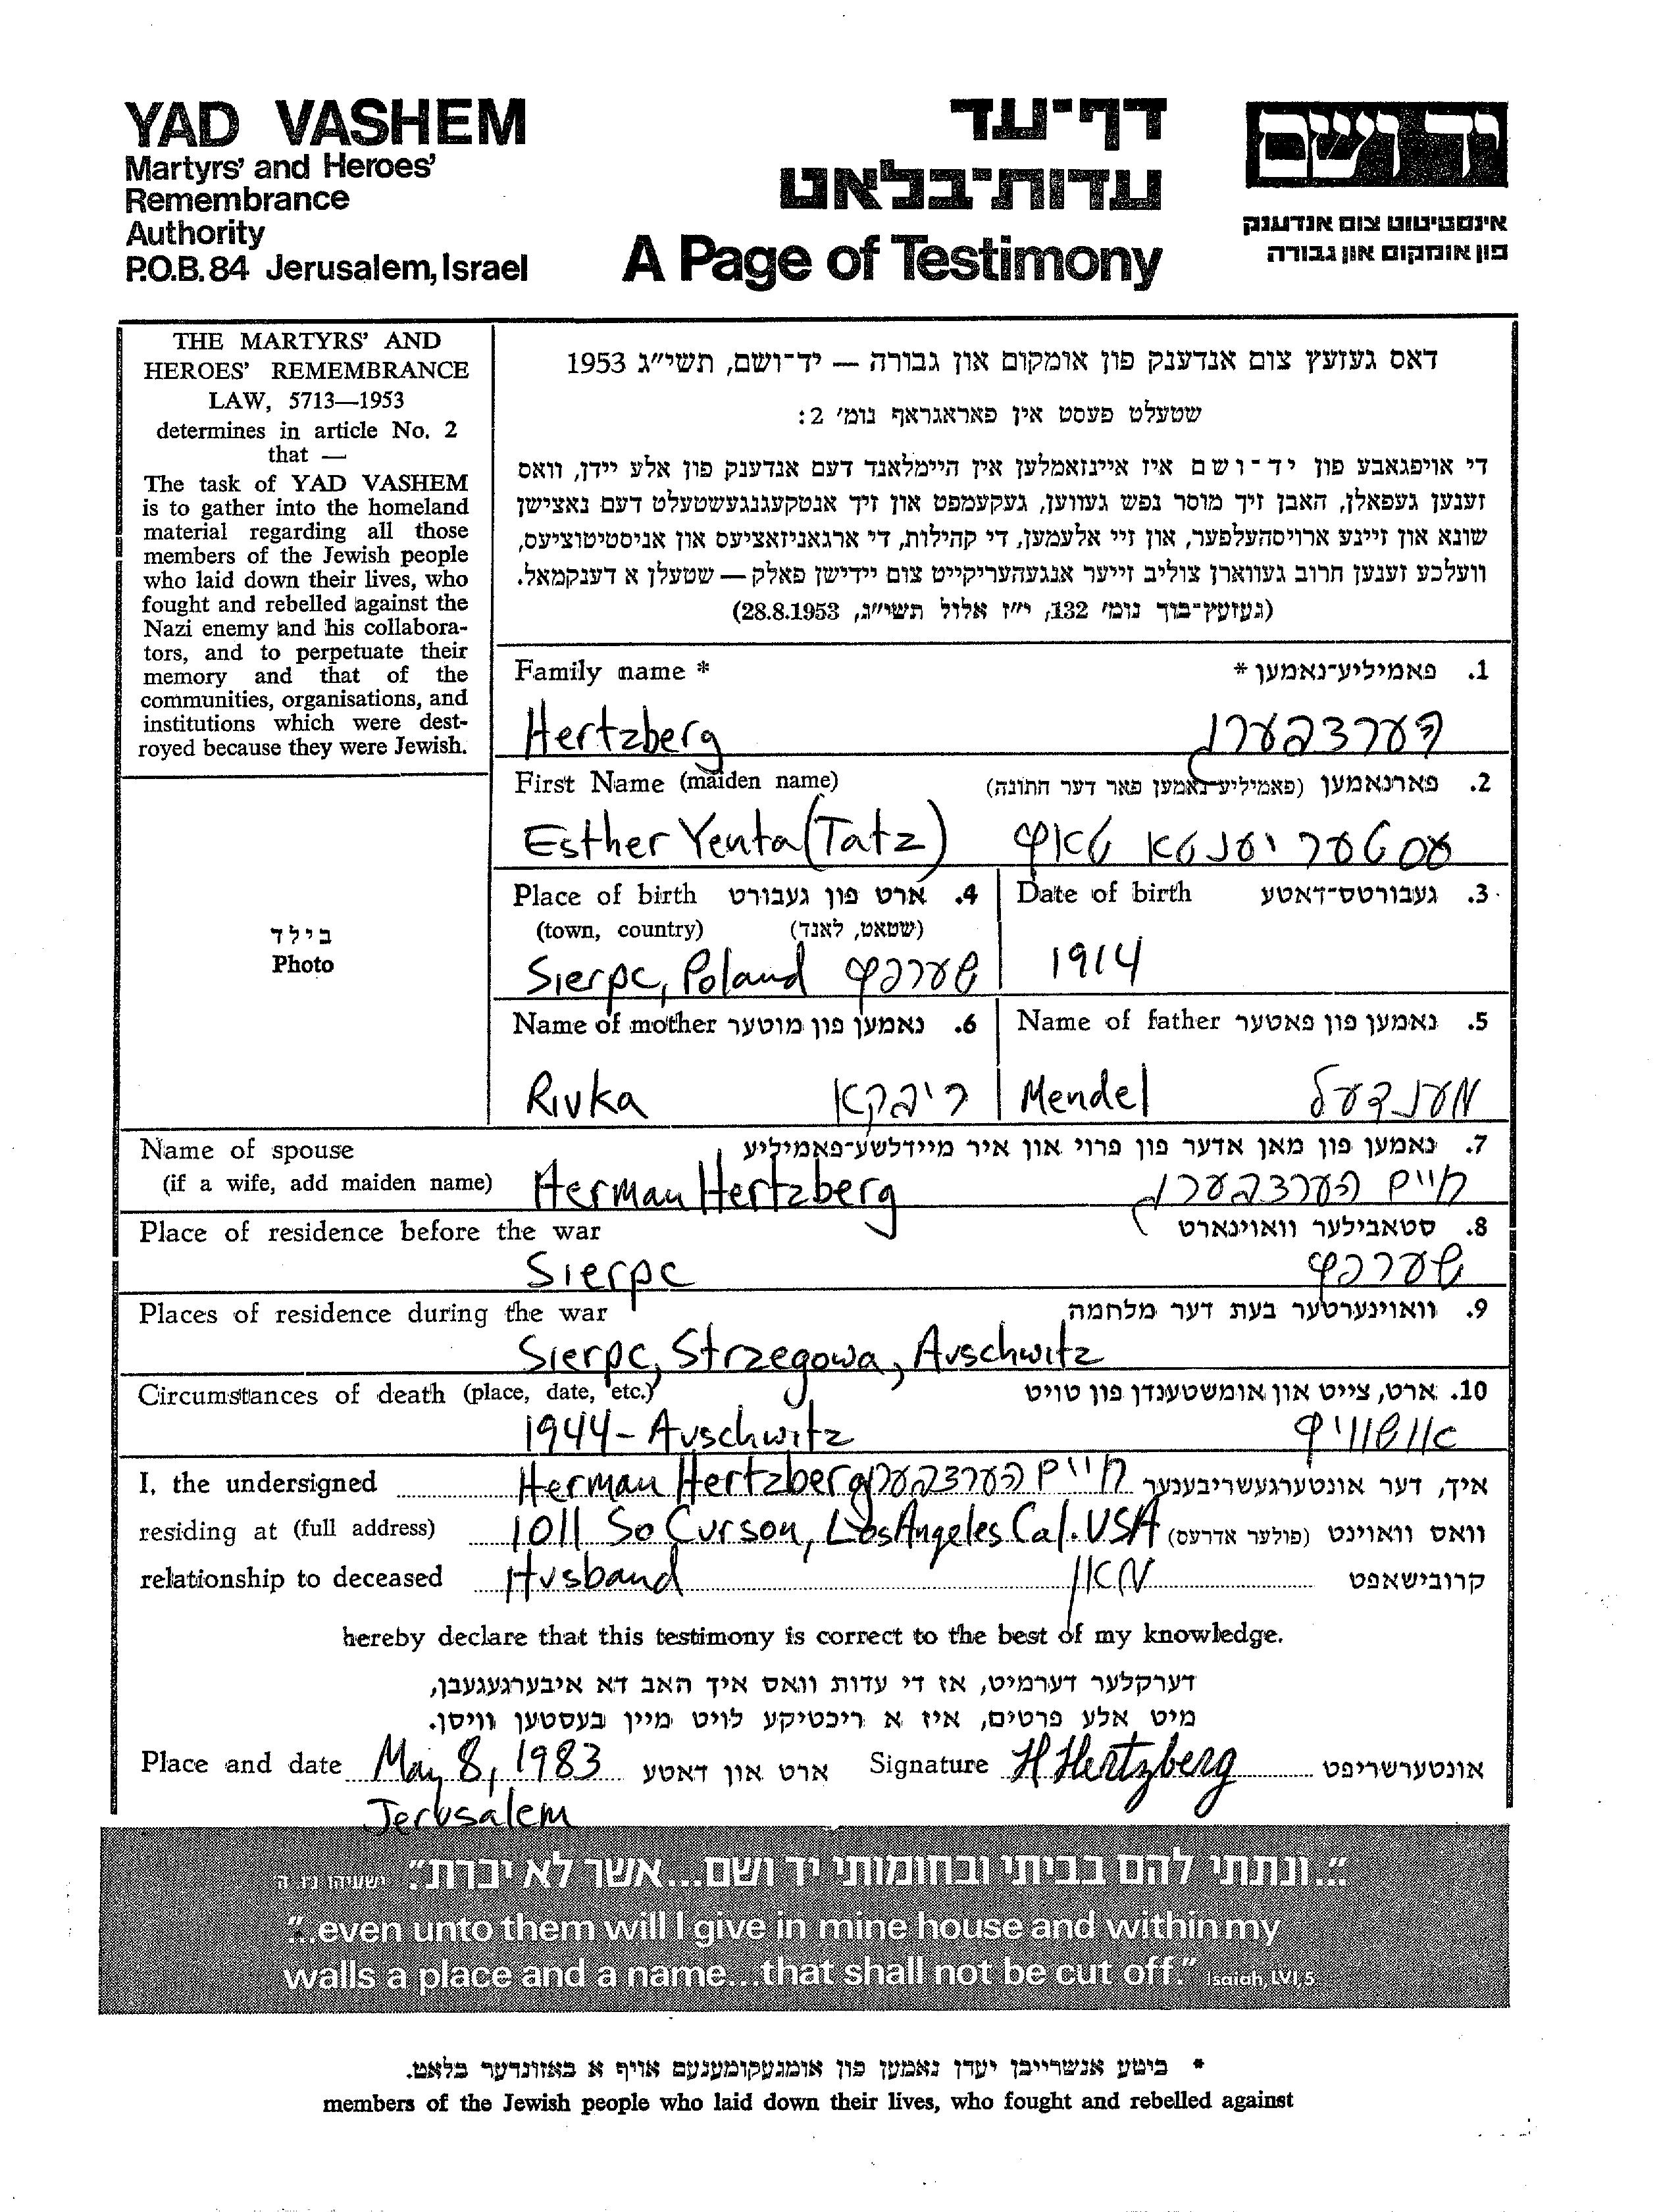 YAD VASHEM
Martyrs' and Heroes'
Remembrance
Authority
P.O.B. 84 Jerusalem, Israel
דף־עד
עדות־בלאט
A Page of Testimony
יד ושם
אינסטיטוט צום אנדענק
פון אומקום און גבורה
THE MARTYRS' AND
HEROES' REMEMBRANCE
LAW, 5713—1953
determines in article No. 2
that —
The task of YAD VASHEM
is to gather into the homeland
material regarding all those
members of the Jewish people
who laid down their lives, who
fought and rebelled against the
Nazi enemy and his collabora-
tors, and to perpetuate their
memory and that of the
communities, organisations, and
institutions which were dest-
royed because they were Jewish.
דאס געזעץ צום אנדענק פון אומקום און גבורה — יד־ושם, תשי״ג 1953
שטעלט פעסט אין פאראגראף נומ׳ 2:
די אויפגאבע פון יד־ושם איז איינזאמלען אין היימלאנד דעם אנדענק פון אלע יידן, וואס
זענען געפאלן, האבן זיך מוסר נפש געווען, געקעמפט און זיך אנטקעגנגעשטעלט דעם נאצישן
שונא און זיינע ארויסהעלפער, און זיי אלעמען, די קהילות, די ארגאניזאציעס און אניסטיטוציעס,
וועלכע זענען חרוב געווארן צוליב זייער אנגעהעריקייט צום יידישן פאלק — שטעלן א דענקמאל.
(געזעץ־בוך נומ׳ 132, י״ז אלול תשי״ג, 28.8.1953)
Family name * פאמיליע־נאמען * .1
Hertzberg הערצבערג
First Name (maiden name) פארנאמען (פאמיליע־נאמען פאר דער חתונה) .2
Esther Yenta (Tatz) עסטער יענטא טאץ
Place of birth ארט פון געבורט .4
(town, country) (שטאט, לאנד)
Sierpc, Poland שערפץ
Date of birth געבורטס־דאטע .3
1914
Name of mother נאמען פון מוטער .6
Rivka ריבקא
Name of father נאמען פון פאטער .5
Mendel מענדעל
בילד
Photo
Name of spouse נאמען פון מאן אדער פון פרוי און איר מיידלשע־פאמיליע .7
(if a wife, add maiden name) Herman Hertzberg חיים הערצבערג
Place of residence before the war סטאבילער וואוינארט .8
Sierpc שערפץ
Places of residence during the war וואוינערטער בעת דער מלחמה .9
Sierpc, Strzegowa, Auschwitz
Circumstances of death (place, date, etc.) ארט, צייט און אומשטענדן פון טויט .10
1944 - Auschwitz אושוויץ
I, the undersigned Herman Hertzberg חיים הערצבערג איך, דער אונטערגעשריבענער
residing at (full address) 1011 So Curson, Los Angeles Cal. USA וואס וואוינט (פולער אדרעס)
relationship to deceased Husband מאן קרובישאפט
hereby declare that this testimony is correct to the best of my knowledge.
דערקלער דערמיט, אז די עדות וואס איך האב דא איבערגעגעבן,
מיט אלע פרטים, איז א ריכטיקע לויט מיין בעסטען וויסן.
Place and date May 8, 1983 ארט און דאטע Signature H Hertzberg אונטערשריפט
Jerusalem
"...ונתתי להם בביתי ובחומותי יד ושם...אשר לא יכרת." ישעיהו נ״ו, ה׳
"...even unto them will I give in mine house and within my
walls a place and a name...that shall not be cut off." Isaiah, LVI, 5
* ביטע אנשרייבן יעדן נאמען פון אומגעקומענעם אויף א באזונדער בלאט.
members of the Jewish people who laid down their lives, who fought and rebelled against